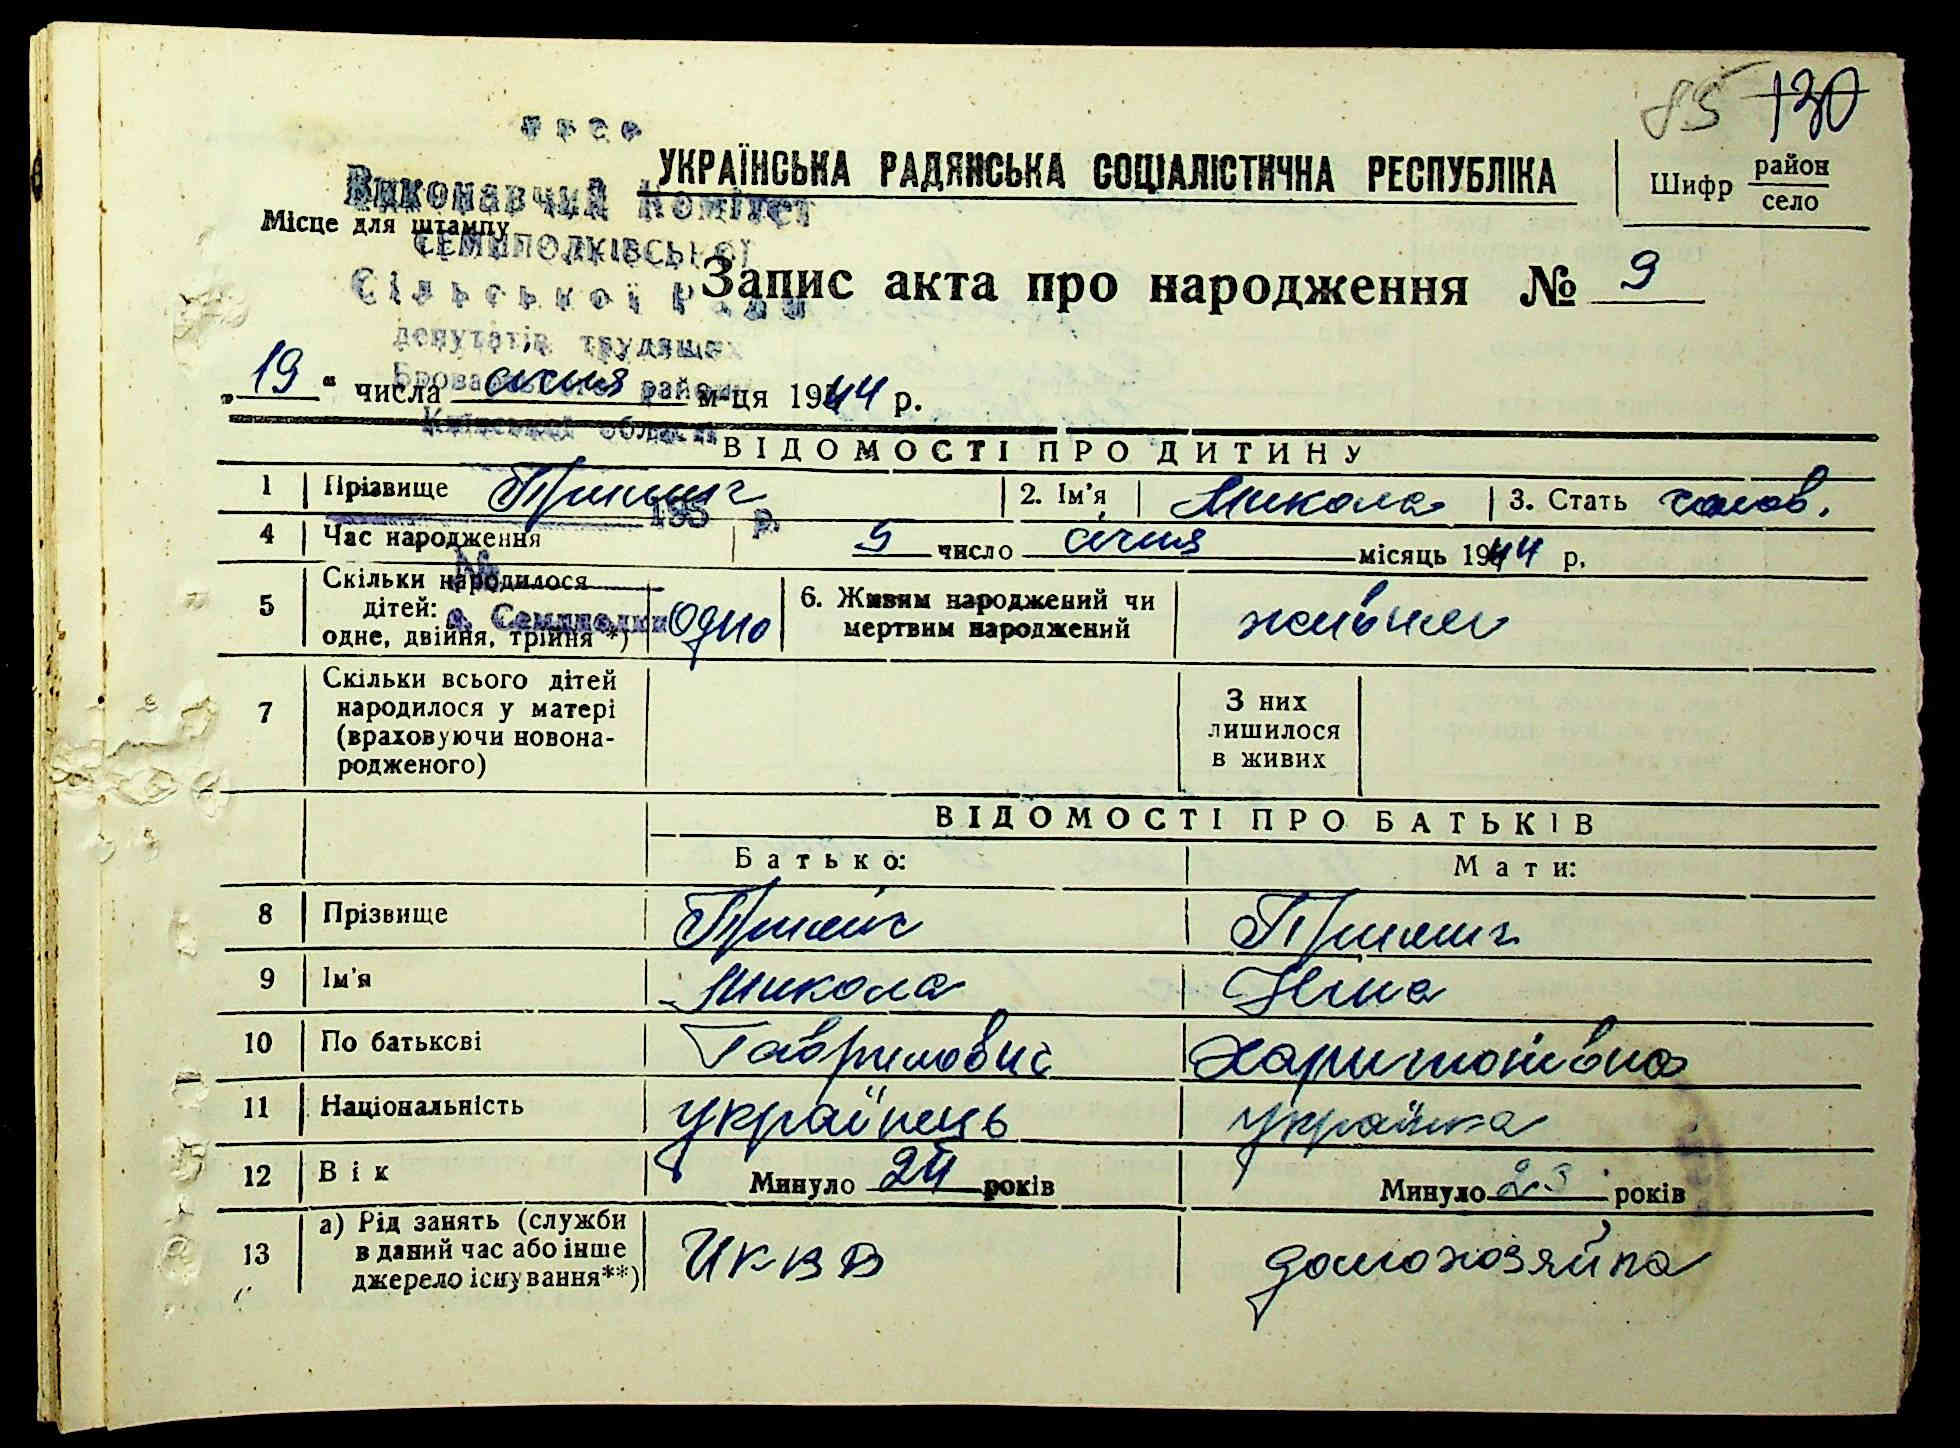 85 130
УРСР
УКРАЇНСЬКА РАДЯНСЬКА СОЦІАЛІСТИЧНА РЕСПУБЛІКА
Шифр район
село
Виконавчий Комітет
Місце для штампу
СЕМИПОЛКІВСЬКОЇ
Сільської Ради
Запис акта про народження № 9
депутатів трудящих
Броварського району
„19“ числа січня м-ця 1944 р.
Київської області
ВІДОМОСТІ ПРО ДИТИНУ
1 Прізвище 2. Ім'я Микола 3. Стать чолов.
195 р.
4 Час народження 5 число січня місяць 1944 р.
№
5 Скільки народилося
дітей:
одне, двійня, трійня *) Одно 6. Живим народжений чи
мертвим народжений живим
с. Семиполки
7 Скільки всього дітей
народилося у матері
(враховуючи новона-
родженого) З них
лишилося
в живих
ВІДОМОСТІ ПРО БАТЬКІВ
Батько: Мати:
8 Прізвище
9 Ім'я Микола Ніна
10 По батькові Гаврилович Харитонівна
11 Національність українець українка
12 Вік Минуло 24 років Минуло 23 років
13 а) Рід занять (служби
в даний час або інше
джерело існування**) домохозяйка